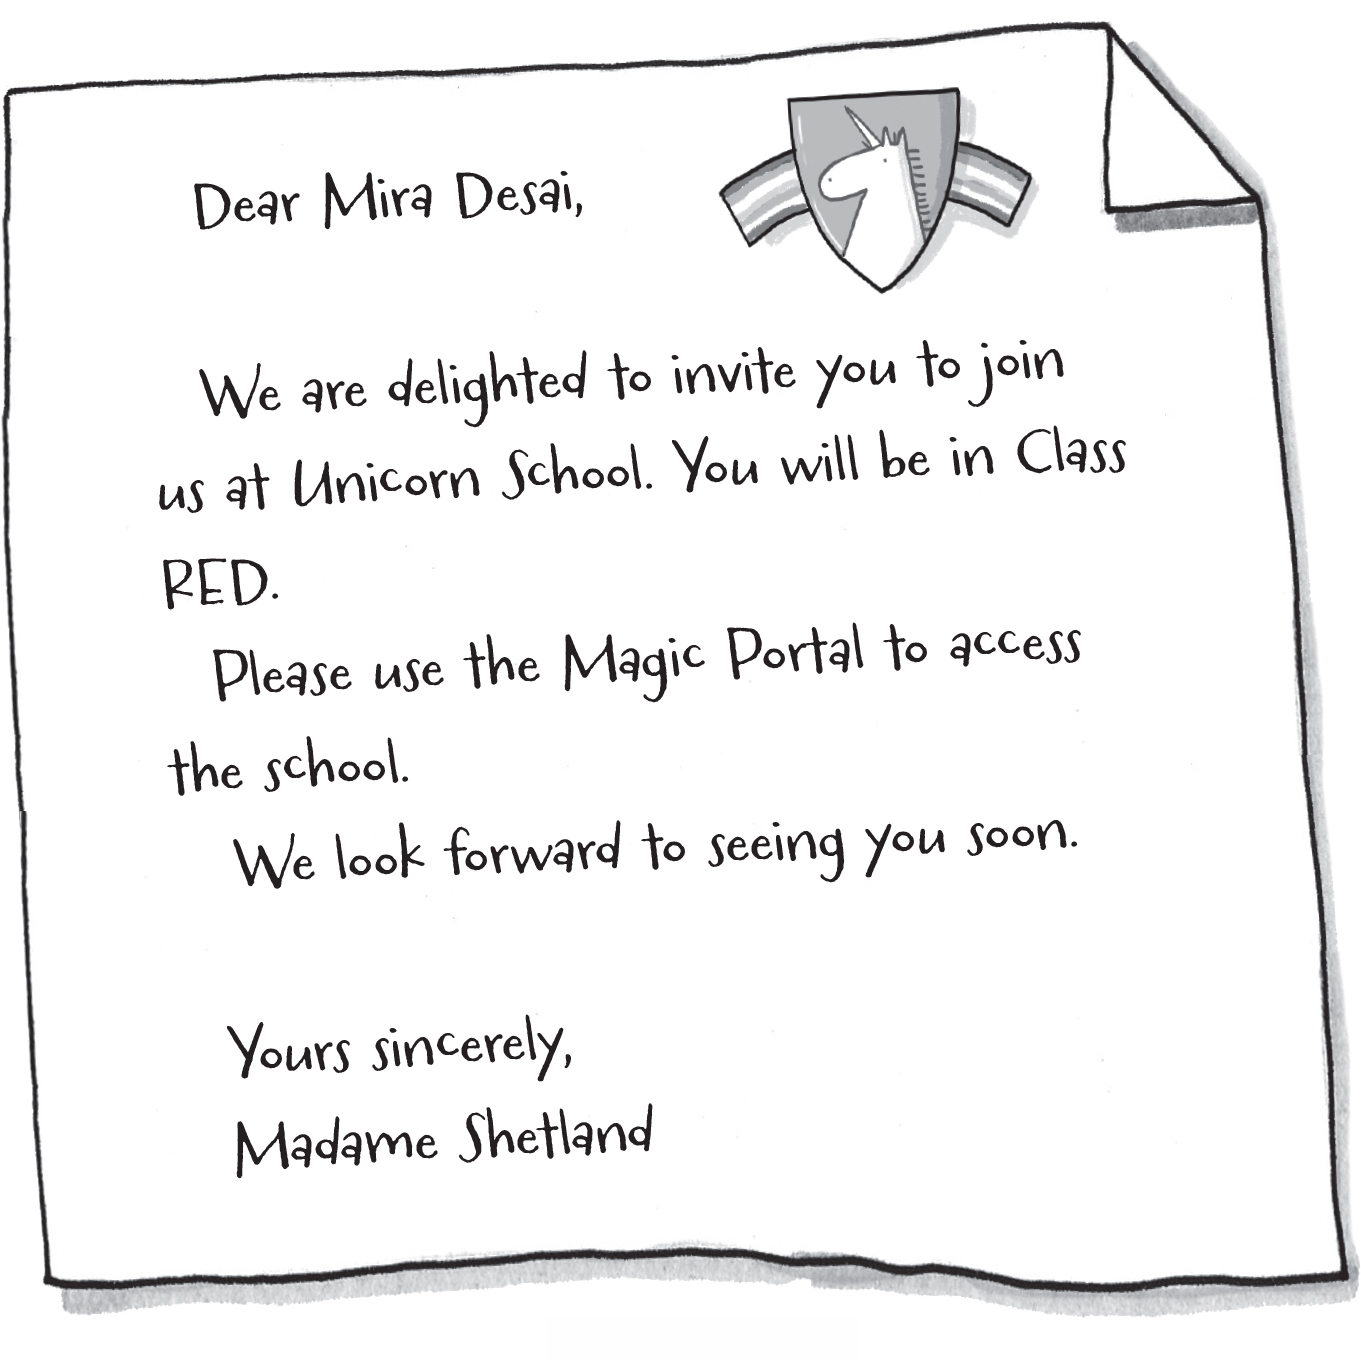 Dear Mira Desai,
We are delighted to invite you to join
us at Unicorn School. You will be in Class
RED.
Please use the Magic Portal to access
the school.
We look forward to seeing you soon.
Yours sincerely,
Madame Shetland